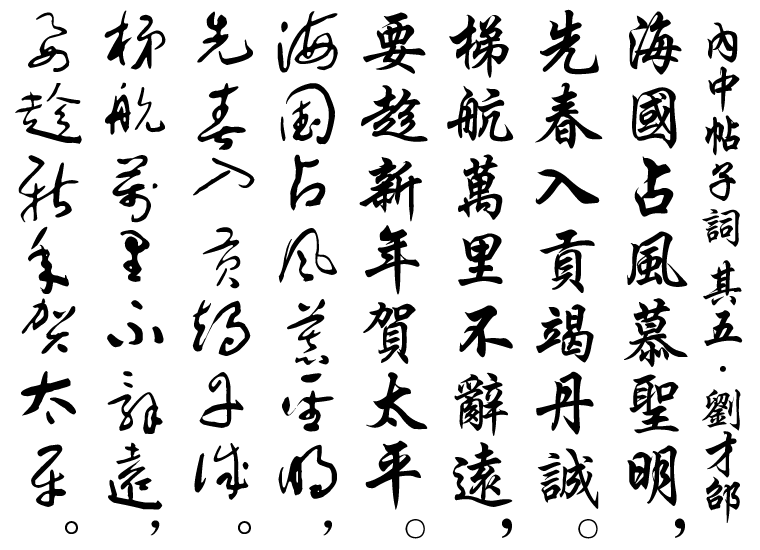 內中帖子詞 其五．劉才邵
海國占風慕聖明，
先春入貢竭丹誠。
梯航萬里不辭遠，
要趁新年賀太平。
海國占風慕聖明，
先春入貢竭丹誠。
梯航萬里不辭遠，
要趁新年賀太平。